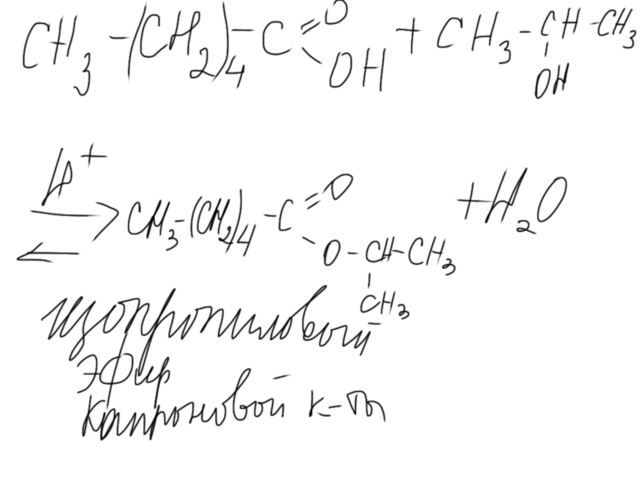 CH₃-(CH₂)₄-C=O OH + CH₃-CH-CH₃ OH
H⁺
⇄ CH₃-(CH₂)₄-C=O O-CH-CH₃ CH₃ + H₂O
изопропиловый
эфир
капроновой к-ты